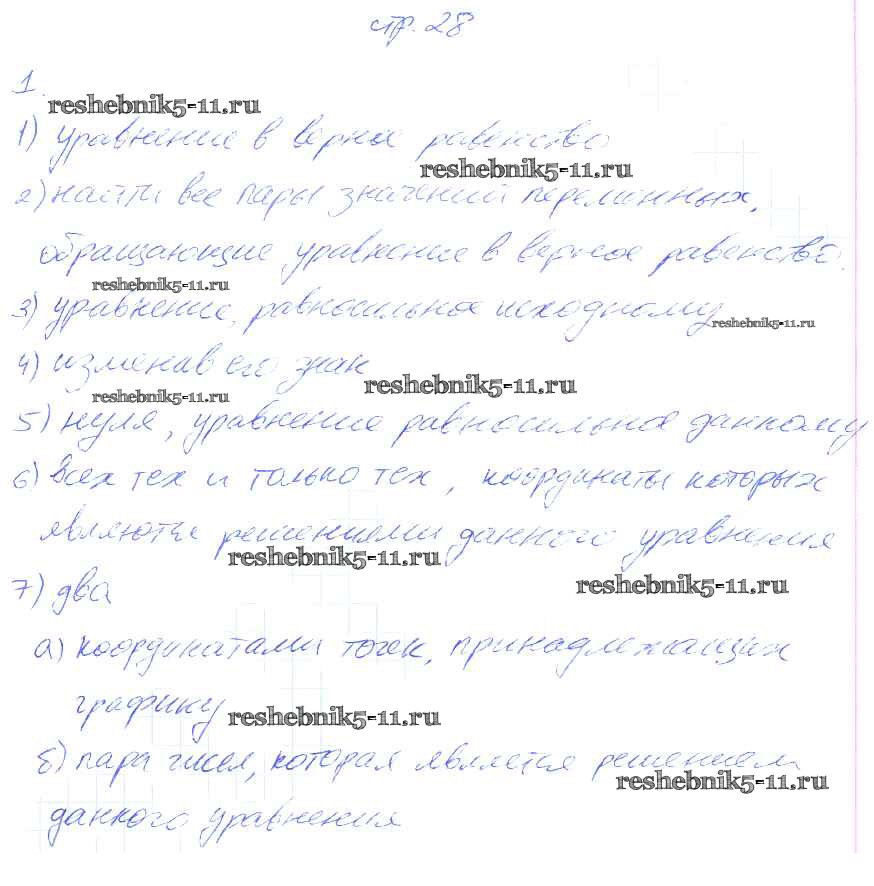 стр. 28
1.
reshebnik5-11.ru
1) уравнение в верное равенство
reshebnik5-11.ru
2) найти все пары значений переменных,
обращающие уравнение в верное равенство.
reshebnik5-11.ru
3) уравнение, равносильное исходному
reshebnik5-11.ru
4) изменив его знак
reshebnik5-11.ru
reshebnik5-11.ru
5) нуля, уравнение равносильное данному
6) всех тех и только тех, координаты которых
являются решениями данного уравнения
reshebnik5-11.ru
reshebnik5-11.ru
7) два
а) координатами точек, принадлежащих
графику
reshebnik5-11.ru
б) пара чисел, которая является решением
reshebnik5-11.ru
данного уравнения